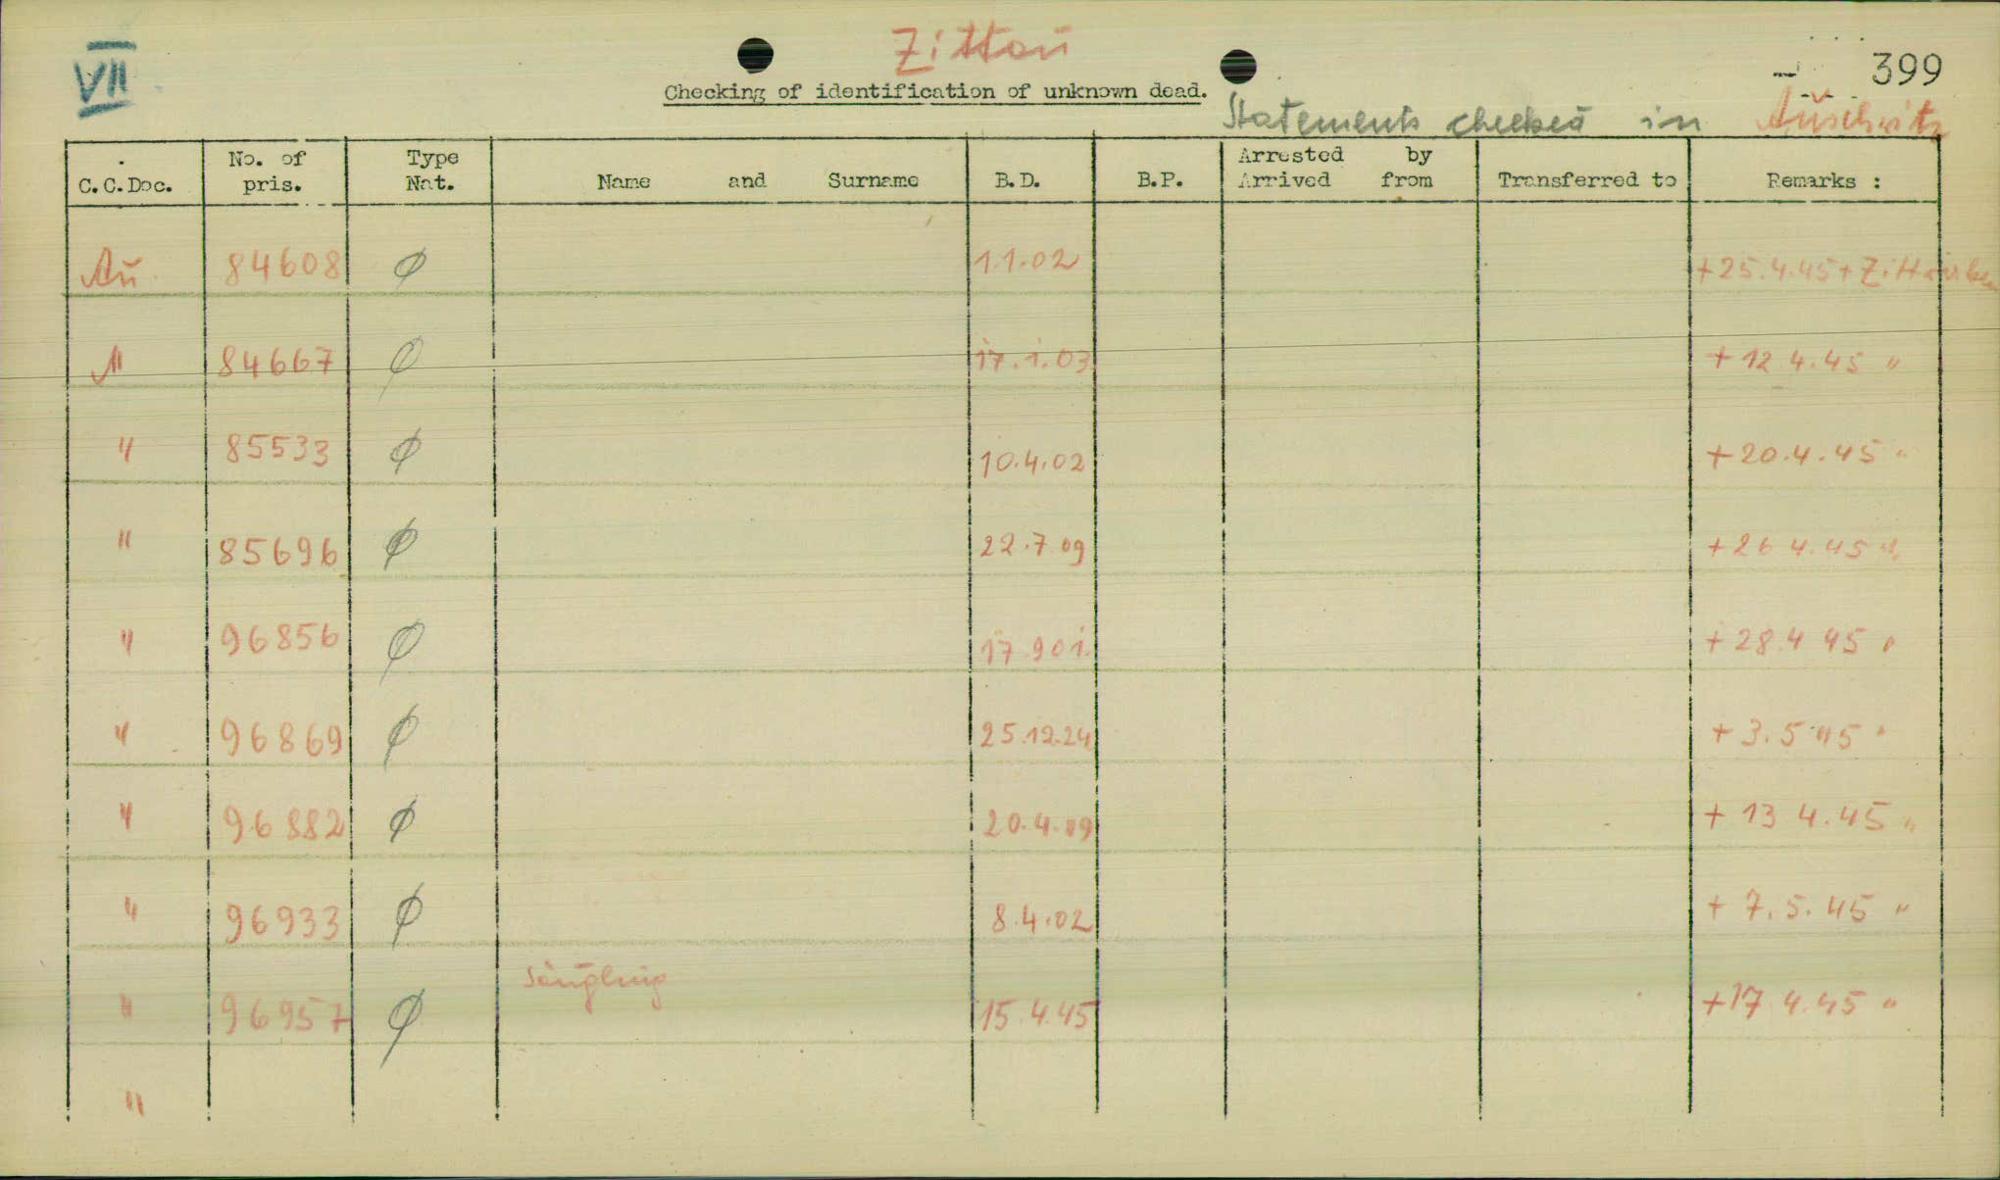 VII
Zittau
399
Checking of identification of unknown dead.
Statements checked in Auschwitz
C.C.Doc. No. of pris. Type Nat. Name and Surname B.D. B.P. Arrested by Arrived from Transferred to Remarks :
Au 84608 Ø 1.1.02 +25.4.45+ Zittau
" 84667 Ø 17.1.03 + 12 4.45 "
" 85533 Ø 10.4.02 +20.4.45 "
" 85696 Ø 22.7 09 +26 4.45 "
" 96856 Ø 17 9 01. + 28.4 45 "
" 96869 Ø 25.12.24 + 3.5 45 "
" 96882 Ø 20.4.09 + 13 4.45 "
" 96933 Ø 8.4.02 + 7.5.45 "
" 96957 Ø Säugling 15.4.45 +17 4.45 "
"